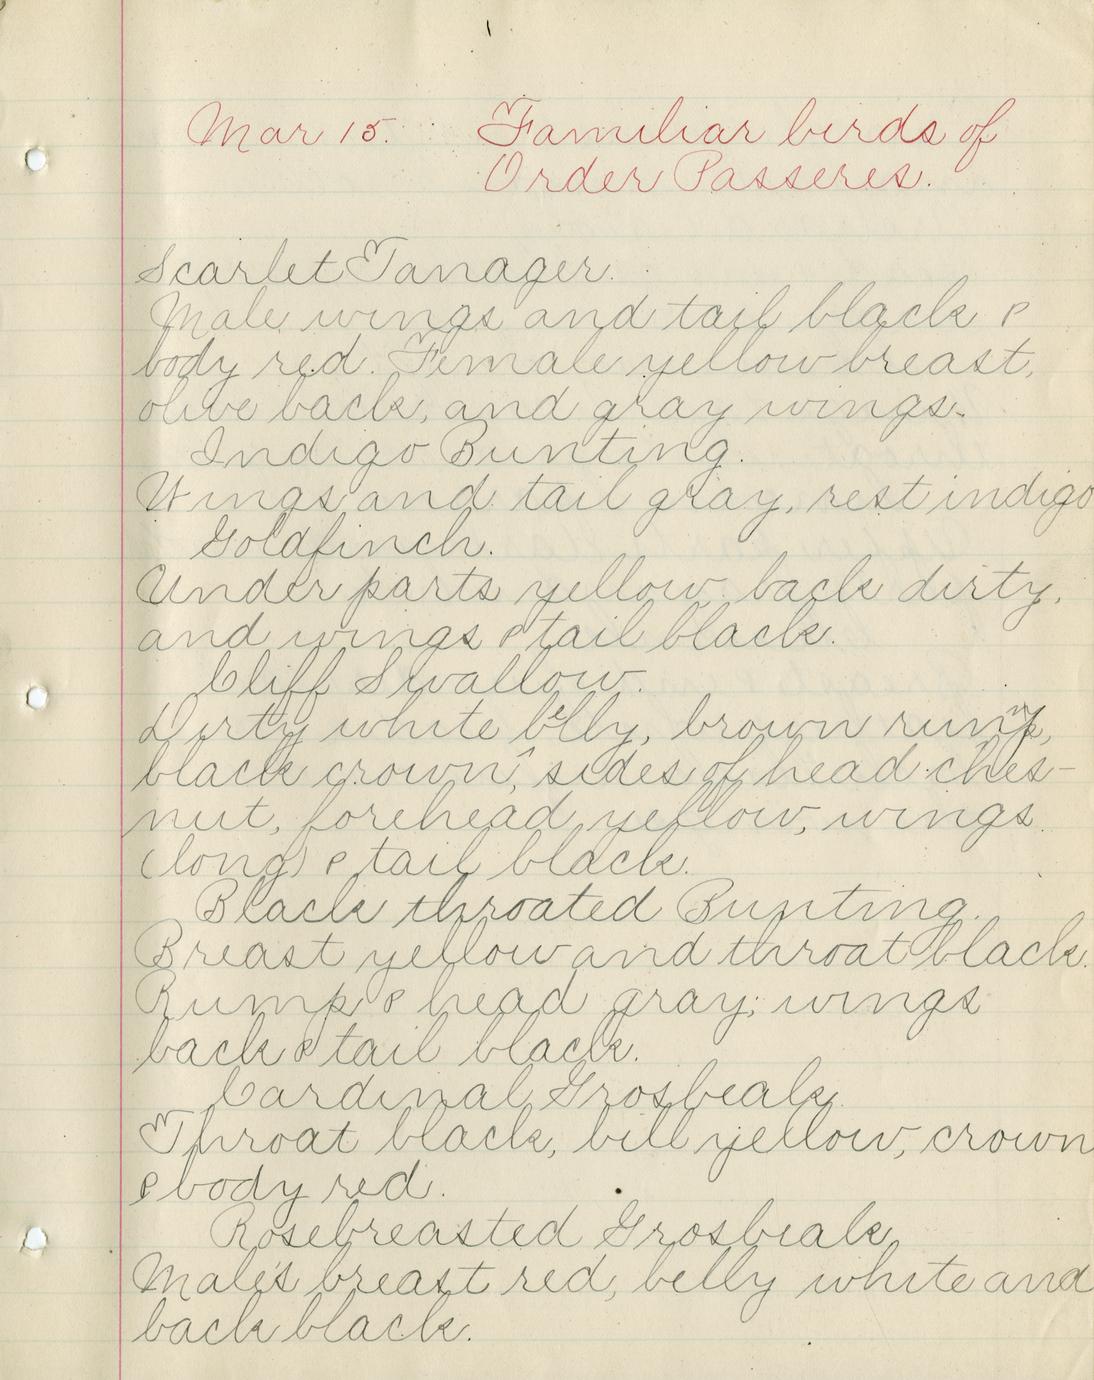 Mar 15. Familiar birds of
Order Passeres.
Scarlet Tanager.
Male wings and tail black &
body red. Female yellow breast,
olive back, and gray wings.
Indigo Bunting.
Wings and tail gray, rest indigo
Goldfinch.
Under parts yellow back dirty,
and wings & tail black.
Cliff Swallow.
Dirty white belly, brown rump,
black crown, sides of head ches-
nut, forehead yellow, wings
(long) & tail black.
Black throated Bunting.
Breast yellow and throat black.
Rump & head gray; wings
back & tail black.
Cardinal Grosbeak.
Throat black, bill yellow, crown
& body red.
Rosebreasted Grosbeak
Male's breast red, belly white and
back black.